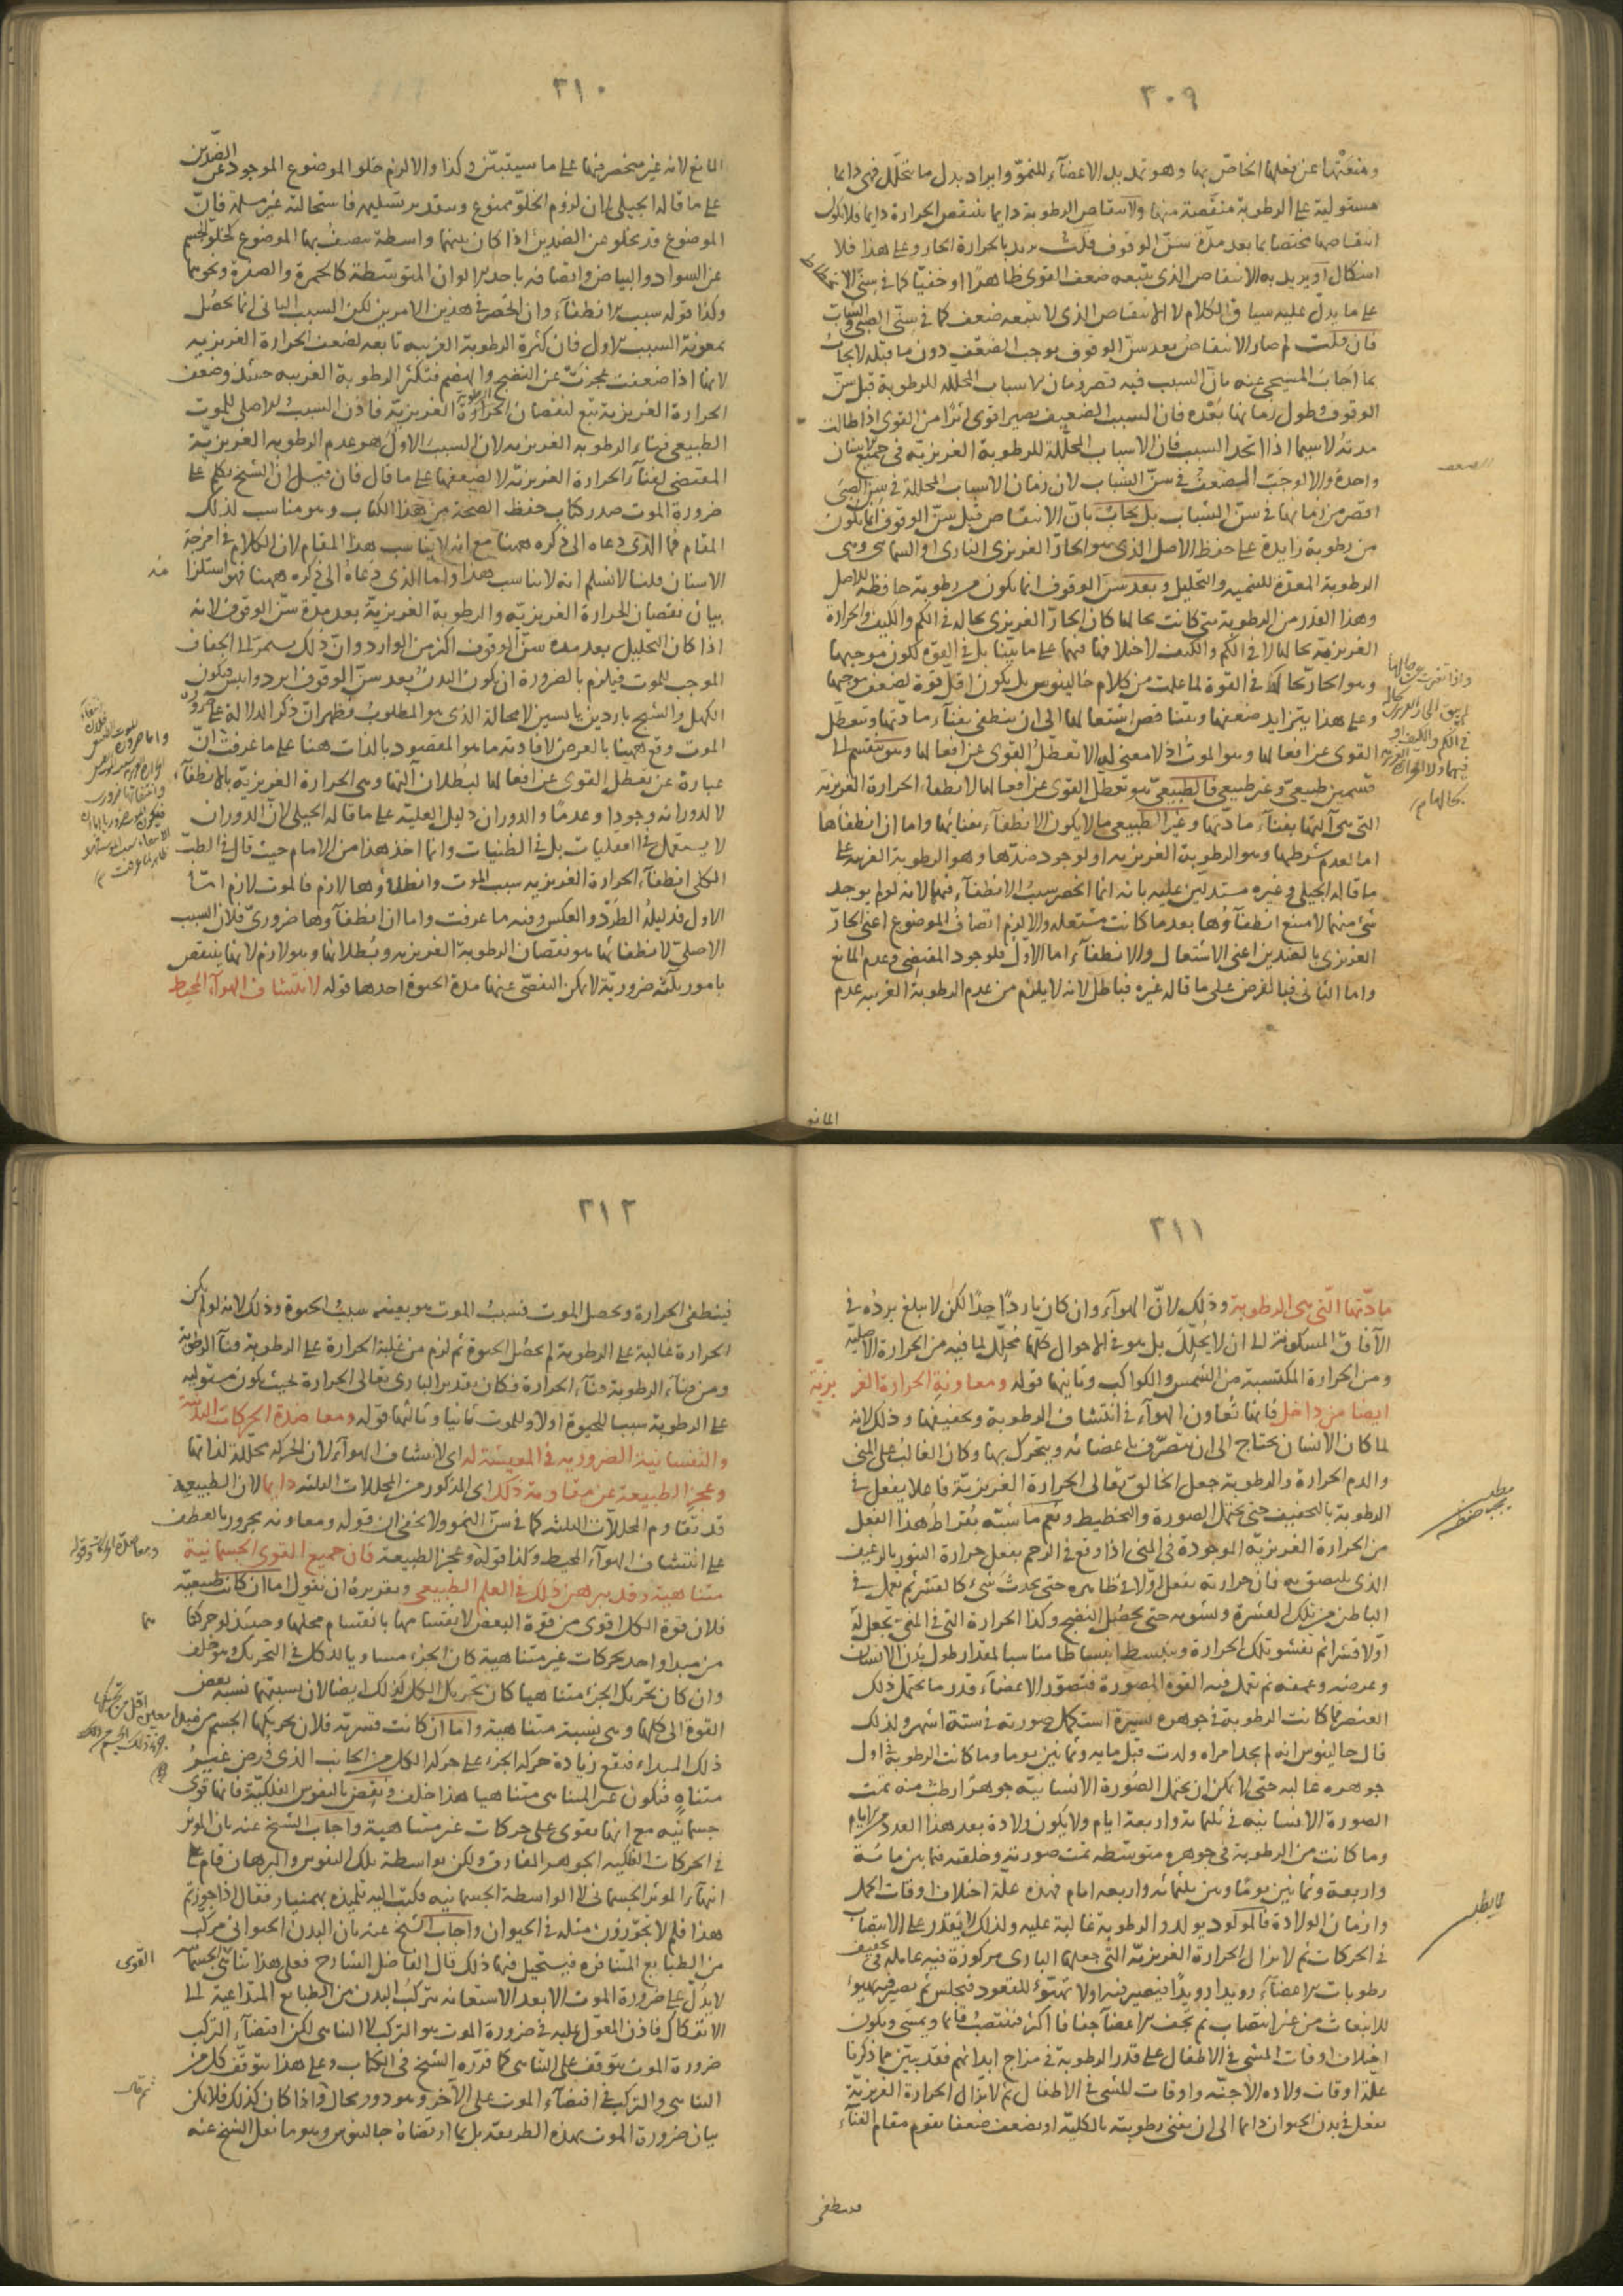 ٣٠٩
ومنعتها عن فعلها الخاص بها وهو تمديد الاعضآء للنمو وايراد بدل ما يتحلل فهى دايما
مستولية على الرطوبة منقصة منها ولانتقاص الرطوبة دايما ينتقص الحرارة دايما فلا يكون
انتقاصها مختصا بما بعد مدة سن الوقوف قلت يريد بالحرارة الحار وعلى هذا فلا
اشكال او يريد به الانتقاص الذى يتبعه ضعف القوى ظاهرا او خفيا كما فى سنى الانحطاط
على ما يدل عليه سياق الكلام لا الانتقاص الذى لا يتبعه ضعف كما فى سنى الصبى والشباب
فان قلت لم صار الانتقاص بعد سن الوقوف يوجب الضعف دون ما قبله لا يجاب
بما اجاب المسيحى عنه بان السبب فيه قصر زمان الاسباب المحللة للرطوبة قبل سن
الوقوف وطول زمانها بعده فان السبب الضعيف يصير اقوى اثرا من القوى اذا طالت
مدته لا سيما اذا اتحد السبب فان الاسباب المحللة للرطوبة الغريزية فى جميع الاسنان
واحدة والا لوجب الضعف فى سن الشباب لان زمان الاسباب المحللة فى سن الصبى
اقصر من زمانها فى سن الشباب بل يجاب بان الانتقاص قبل سن الوقوف انما يكون
من رطوبة زايدة على حفظ الاصل الذى هو الحار الغريزى النارى او السماوى وهى
الرطوبة المعدة للتنمية والتحليل وبعد سن الوقوف انما يكون من رطوبة حافظة للاصل
وهذا القدر من الرطوبة متى كانت بحالها كان الحار الغريزى بحاله فى الكم والكيف والحرارة
الغريزية بحالها لا فى الكم والكيف لاختلافها فيهما على ما بينا بل فى القوة لكون موجبها
وهو الحار بحاله فى القوة لما علمت من كلام جالينوس بل يكون اقل قوة لضعف موجبها
وعلى هذا يتزايد ضعفها ويتناقص اشتعالها الى ان ينطفى بفنآء مادتها ويتعطل
القوى عن افعالها وهو الموت اذ لا معنى له الا تعطل القوى عن افعالها وهو ينقسم الى
قسمين طبيعى وغير طبيعى فالطبيعى هو تعطل القوى عن افعالها لانطفاء الحرارة الغريزية
التى هى آلتها بفنآء مادتها وغير الطبيعى ما لا يكون الانطفآء بفنائها واما ان انطفآءها
اما لعدم شرطها وهو الرطوبة الغريزية او لوجود ضدها وهو الرطوبة الغريبة على
ما قاله الجيلى وغيره مستدلين عليه بانه انما انحصر سبب الانطفآء فيهما لانه لو لم يوجد
شئ منهما لامتنع انطفآؤها بعد ما كانت مشتعلة والا لزم اتصاف الموضوع اعنى الحار
الغريزى بالضدين اعنى الاشتعال والانطفآء اما الاول فلوجود المقتضى وعدم المانع
واما الثانى فبالفرض على ما قاله غيره فباطل لانه لا يلزم من عدم الرطوبة الغريبة عدم
المانع
٣١٠
المانع لانه غير منحصر فيها على ما سيتبين وكذا والا لزم خلو الموضوع الموجود عن الضدين
على ما قاله الجيلى لان لزوم الخلو ممنوع وبتقدير تسليمه فاستحالته غير مسلمة فان
الموضوع قد يخلو عن الضدين اذا كان بينهما واسطة يتصف بها الموضوع كخلو الجسم
عن السواد والبياض واتصافه باحد الالوان المتوسطة كالحمرة والصفرة ونحوهما
وكذا قوله سبب الانطفآء وان انحصر فى هذين الامرين لكن السبب الثانى انما يحصل
بمعونة السبب الاول فان كثرة الرطوبة الغريبة تابعة لضعف الحرارة الغريزية
لانها اذا ضعفت عجزت عن النضج والهضم فتكثر الرطوبة الغريبة حينئذ وضعف
الحرارة الغريزية تتبع لنقصان الرطوبة الغريزية فاذن السبب الاصلى للموت
الطبيعى فناء الرطوبة الغريزية لان السبب الاول هو عدم الرطوبة الغريزية
المقتضى لفنآء الحرارة الغريزية لا لضعفها على ما قال فان قيل ان الشيخ تكلم على
ضرورة الموت صدر كتاب حفظ الصحة من هذا الكتاب وهو مناسب لذلك
المقام فما الذى دعاه الى ذكره ههنا مع انه لا يناسب هذا المقام لان الكلام فى امزجة
الاسنان قلنا لا نسلم انه لا يناسب هذا واما الذى دعاه الى ذكره ههنا فهو استلزام
بيان نقصان الحرارة الغريزية والرطوبة الغريزية بعد مدة سن الوقوف لانه
اذا كان التحليل بعد مدة سن الوقوف اكثر من الوارد وان ذلك يستمر الى الجفاف
الموجب للموت فيلزم بالضرورة ان يكون البدن بعد سن الوقوف ابرد وايبس فيكون
الكهل والشيخ باردين يابسين لا محالة الذى هو المطلوب فظهر ان ذكر الدلالة على ضرورة
الموت وقع ههنا بالعرض لافادته ما هو المقصود بالذات ههنا على ما عرفت ان
عبارة عن تعطل القوى عن افعالها لبطلان آلتها وهى الحرارة الغريزية بالانطفآء
لا لدورانه وجودا وعدما والدوران دليل العلية على ما قاله الجيلى لان الدوران
لا يستعمل فى العقليات بل فى الظنيات وانما اخذ هذا من الامام حيث قال فى الطب
الكلى انطفآء الحرارة الغريزية سبب الموت وانطفاؤها لازم فالموت لازم اما
الاول فدليله الطرد والعكس وفيه ما عرفت واما ان انطفآؤها ضرورى فلان السبب
الاصلى لانطفائها هو نقصان الرطوبة الغريزية وبطلانها وهو لازم لانها ينتقص
بامور ثلثة ضرورية لا يمكن التفصى عنها مدة الحيوة احدها قوله لانتشاف الهوآء المحيط
٣١١
مادتها التى هى الرطوبة وذلك لان الهوآء وان كان باردا جدا لكن لا يبلغ برده فى
الآفاق المسكونة الى ان لا يحلل بل هو فى الاحوال كلها محلل لما فيه من الحرارة الاصلية
ومن الحرارة المكتسبة من الشمس والكواكب وثانيها قوله ومعاونة الحرارة الغريزية
ايضا من داخل فانها تعاون الهوآء فى انتشاف الرطوبة وتجفيفها وذلك لانه
لما كان الانسان يحتاج الى ان يتصرف باعضائه ويتحرك بها وكان الغالب على المنى
والدم الحرارة والرطوبة جعل الخالق تعالى الحرارة الغريزية فاعلا يفعل فى
الرطوبة بالتجفيف حتى يحتمل الصورة والتخطيط ونعم ما شبه بقراط هذا الفعل
من الحرارة الغريزية الموجودة فى المنى اذا وقع فى الرحم بفعل حرارة التنور بالرغيف
الذى يلصق به فان حرارته تفعل اولا فى ظاهره حتى يحدث شئ كالقشر ثم تعمل فى
الباطن من تلك القشرة وتشويه حتى يحصل النضج وكذا الحرارة التى فى المنى تجعل له
اولا قشرا ثم تفشو تلك الحرارة وتنبسط انبساطا مناسبا لمقدار طول بدن الانسان
وعرضه وعمقه ثم تعمل فيه القوة المصورة فتصور الاعضآء قدر ما يحتمل ذلك
العنصر فما كانت الرطوبة فى جوهره يسيرة استكمل صورته فى ستة اشهر ولذلك
قال جالينوس انه لم يجد امراه ولدت قبل مايه وثمانين يوما وما كانت الرطوبة فى اول
جوهره غالبة حتى لا يمكن ان يحتمل الصورة الانسانية جوهرا رطبا منه تمت
الصورة الانسانية فى ثلثمائة واربعة ايام ولا يكون ولادة بعد هذا العدد من الايام
وما كانت من الرطوبة فى جوهره متوسطة تمت صورته وخلقته فيما بين مائة
واربعة وثمانين يوما وبين ثلثمائة واربعة ايام فهذه علة اختلاف اوقات الحمل
وازمان الولادة فالمولود يولد والرطوبة غالبة عليه ولذلك لا يقدر على الانتصاب
فى الحركات ثم لا تزال الحرارة الغريزية التى جعلها البارى مركوزة فيه عاملة فى تجفيف
رطوبات الاعضآء رويدا رويدا فيصير فيه اولا تهيؤ للقعود فيجلس ثم يصير فيه تهيؤ
للانبعاث من غير انتصاب ثم تجف الاعضآ جفافا اكثر فينتصب قائما ويمشى ويكون
اختلاف اوقات المشى فى الاطفال على قدر الرطوبة فى مزاج ابدانهم فقد بين مما ذكرنا
علة اوقات ولادة الاجنة واوقات المشى فى الاطفال ثم لا تزال الحرارة الغريزية
تفعل فى بدن الحيوان دائما الى ان يفنى رطوبته بالكلية او يضعف ضعفا يقوم مقام الفنآء
فينطفى
٣١٢
فينطفى الحرارة ويحصل الموت فسبب الموت هو بعينه سبب الحيوة وذلك لانه لو لم يكن
الحرارة غالبة على الرطوبة لم يحصل الحيوة ثم لزم من غلبة الحرارة على الرطوبة فنآء الرطوبة
ومن فنآء الرطوبة فنآء الحرارة فكان تقدير البارى تعالى الحرارة بحيث يكون مستولية
على الرطوبة سببا للحيوة اولا وللموت ثانيا وثالثها قوله ومعاضدة الحركات البدنية
والنفسانية الضرورية فى المعيشة له اى لانتشاف الهوآء لان الحركة محللة لذاتها
وعجز الطبيعة عن مقاومة ذلك اى المذكور من المحللات الثلثة دايما لان الطبيعة
قد تقاوم المحللات الثلثة كما فى سن النمو ولا يخفى ان قوله ومعاونة مجرور بالعطف
على انتشاف الهوآء المحيط وكذا قوله وعجز الطبيعة فان جميع القوى الجسمانية
متناهية وقد برهن ذلك فى العلم الطبيعى وتقريره ان نقول اما ان كانت طبيعية
فلان قوة الكل اقوى من قوة البعض لانقسامها بانقسام محلها وحينئذ لو حركتا
من مبدا واحد بحركات غير متناهية كان الجزء مساويا للكل فى التحريك وهو خلف
وان كان تحريك الجزء متناهيا كان تحريك الكل كذلك ايضا لان نسبتهما نسبة بعض
القوة الى كلها وهى نسبة متناهية واما ان كانت قسرية فلان تحريكها الجسم من مبدا معين اقل من تحريكها
ذلك المبداء فتقع زيادة حركة الجزء على حركة الكل من الجانب الذى فرض غير
متناه فيكون غير المتناهى متناهيا هذا خلف ونقض بالنفوس الفلكية فانها قوى
جسمانية مع انها تقوى على حركات غير متناهية واجاب الشيخ عنه بان المؤثر
فى الحركات الفلكية الجوهر المفارق ولكن بواسطة تلك النفوس والبرهان قام على
انتهآء المؤثر الجسمانى لا الواسطة الجسمانية فكتب اليه تلميذه بهمنيار فقال اذا جوزتم
هذا فلم لا تجوزون مثله فى الحيوان واجاب الشيخ عنه بان البدن الحيوانى مركب
من الطبايع المتنافرة فيستحيل فيها ذلك قال الفاضل الشارح فعلى هذا تناهى القوى الجسمانية
لا يدل على ضرورة الموت الا بعد الاستعانة بتركب البدن من الطبايع المتداعية الى
الانفكاك فاذن المعول عليه فى ضرورة الموت هو التركب لا التناهى لكن اقتضآء التركب
ضرورة الموت يتوقف على التناهى كما قرره الشيخ فى الكتاب وعلى هذا يتوقف كل من
التناهى والتركب فى اقتضآء الموت على الآخر وهو دور محال واذا كان كذلك فلا يمكن
بيان ضرورة الموت بهذه الطريقة بل بما ارتضاه جالينوس وهو ما نقل الشيخ عنه